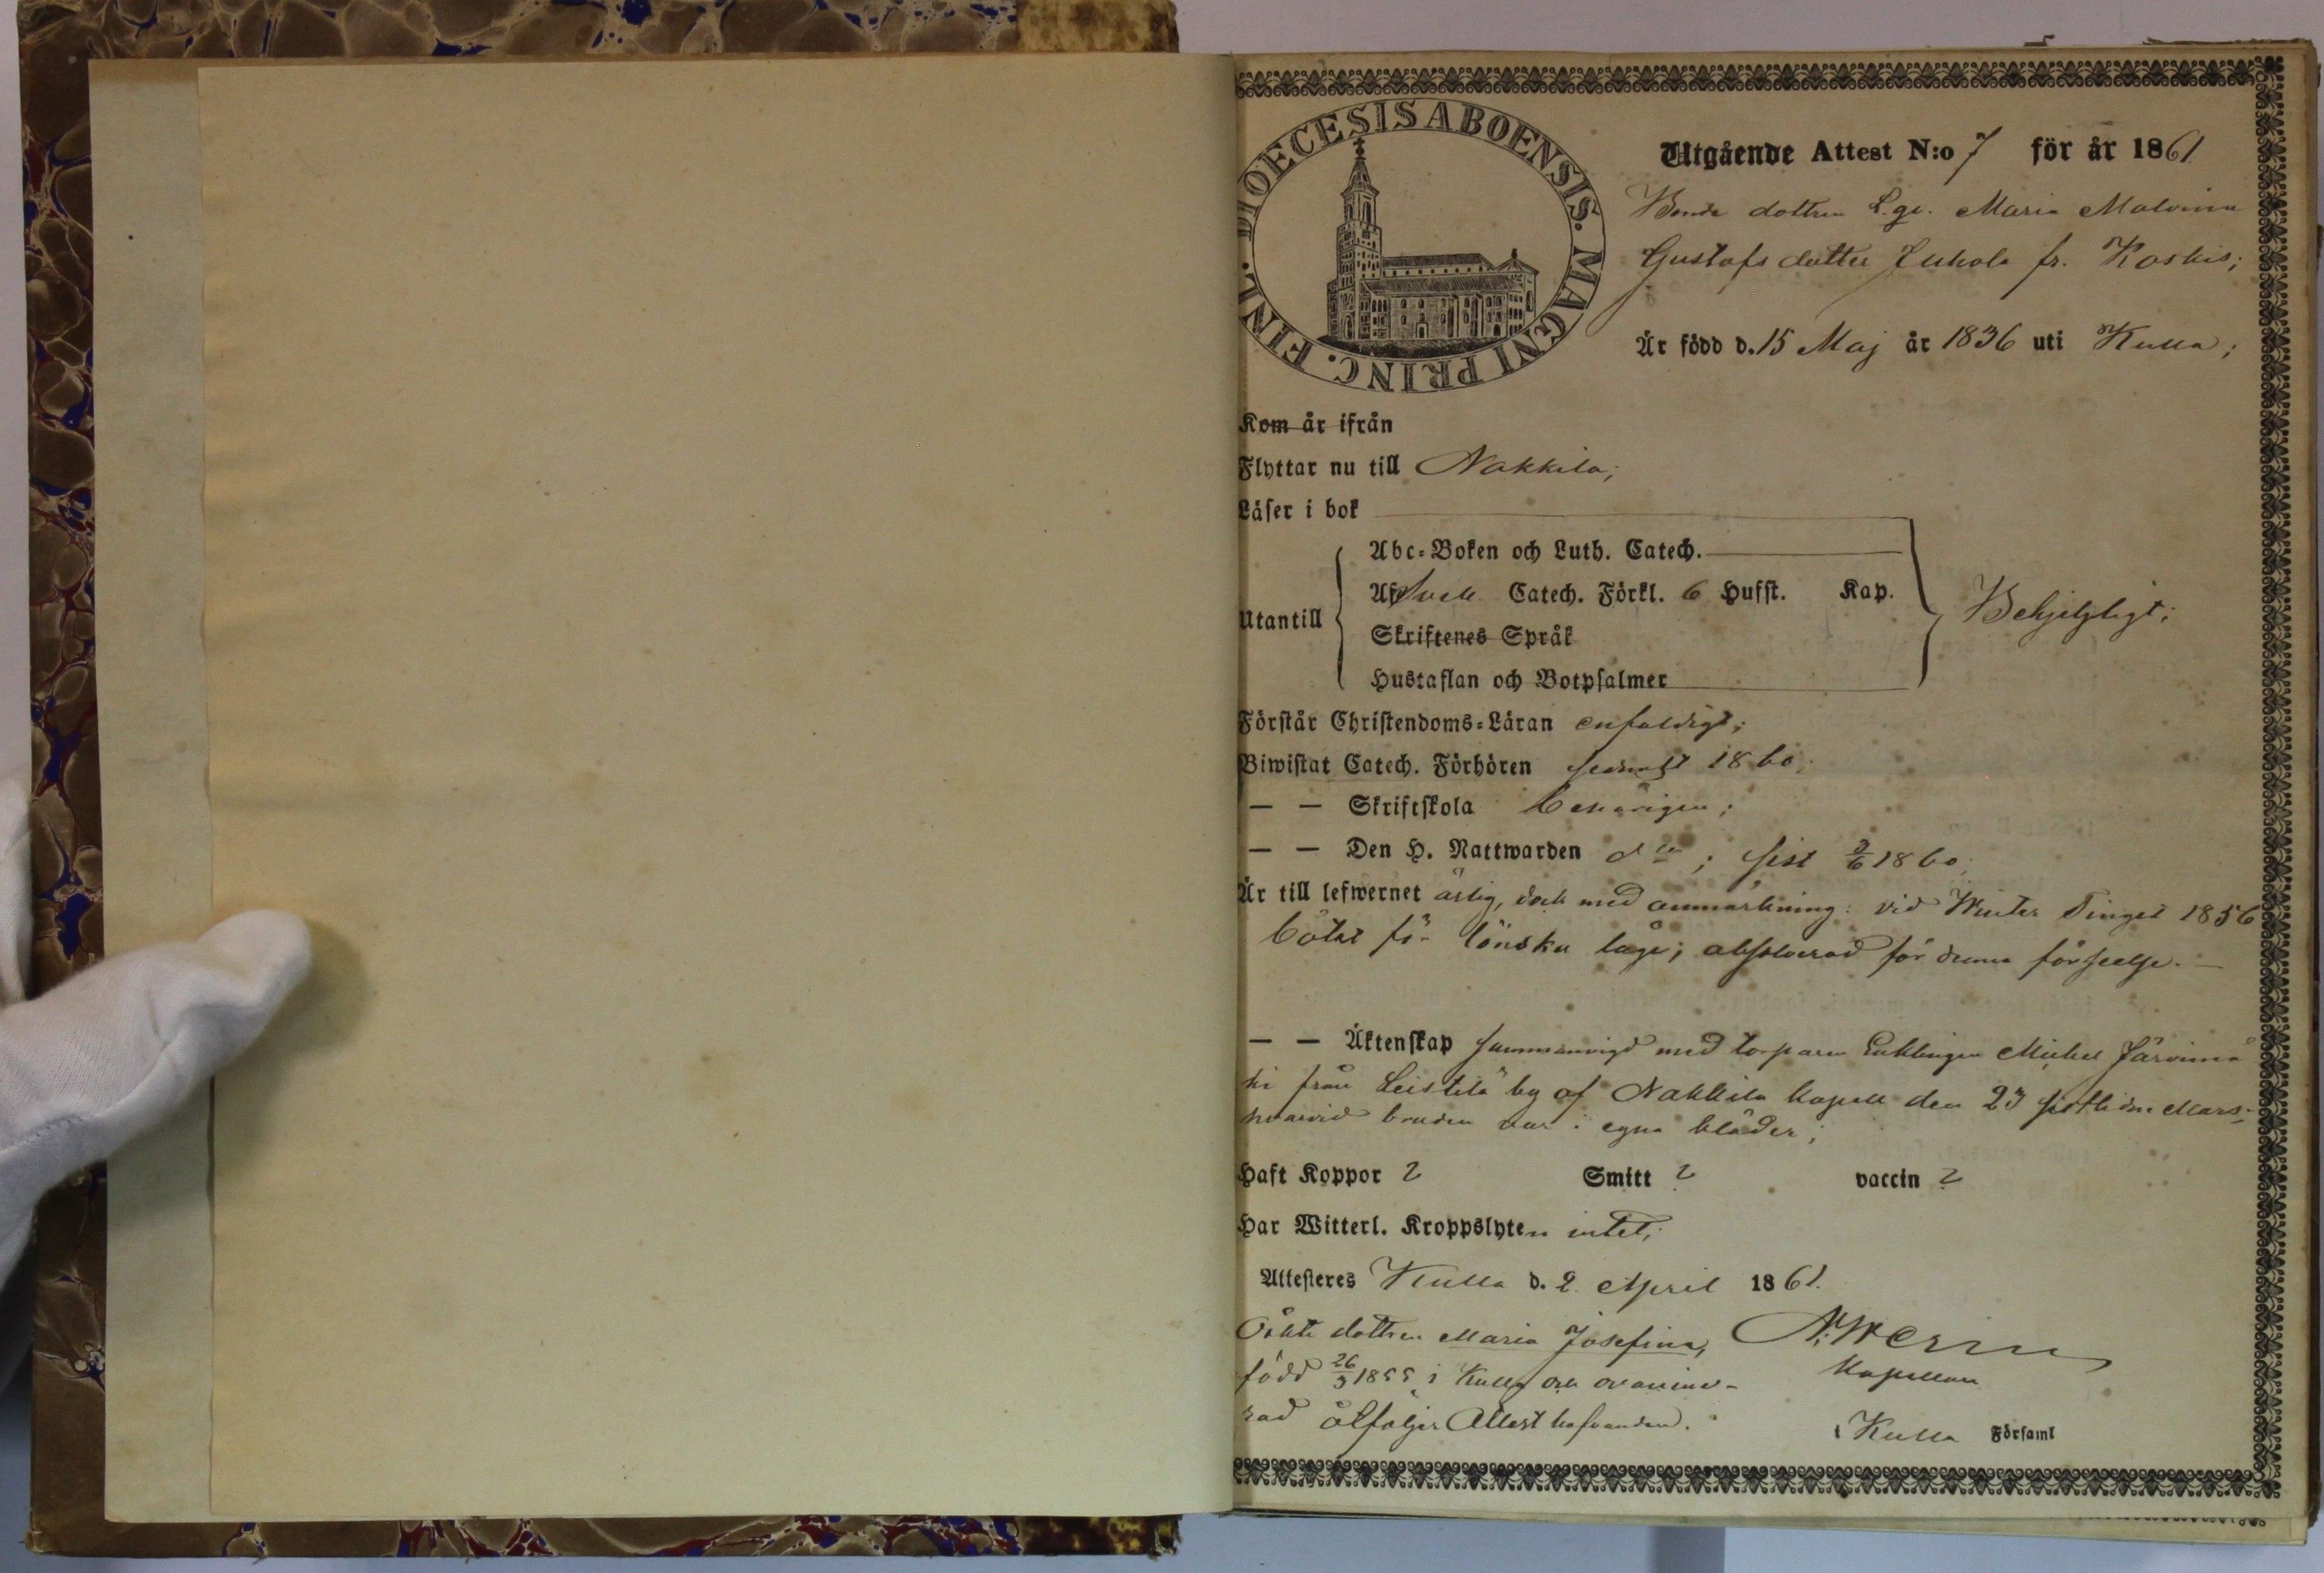 DIOECESIS ABOENSIS. MAGNI PRINC. FINL.
Utgående Attest N:o 7 för år 1861
Bonde dottren L.ge. Maria Malvina
Gustafs dotter Juhola fr. Koskis;
Är född d. 15 Maj år 1836 uti Kulla;
Kom år ifrån
Flyttar nu till Nakkila;
Läser i bok
Abc-Boken och Luth. Catech.
Af Sveb. Catech. Förkl. 6 Hufst. Kap.
Utantill
Behjelpligt;
Skriftenes Språk
Hustaflan och Botpsalmer
Förstår Christendoms-Läran enfaldigt;
Biwistat Catech. Förhören sednast 1860;
— — Skriftskola behörigen;
— — Den H. Nattwarden d:o; sist 3/6 1860;
Är till lefwernet ärlig, dock med anmärkning: vid Winter Tinget 1856
bötat för lönska läge; absolverad för denna förseelse. —
— — Äktenskap sammanvigd med torparen Enklingen Michel Järvinmä
ki från Leistilä by af Nakkila kapell den 23 sistlidne Mars;
hvarvid bruden var i egna kläder;
Haft Koppor ? Smitt ? vaccin ?
Har Witterl. Kroppslyten intet;
Attesteres Kulla d. 2 April 1861.
Oäkta dottren Maria Josefina,
född 26/3 1855 i Kulla och ovaccine-
rad åtföljer Attest hafvanden.
Kapellan
i Kulla Församl